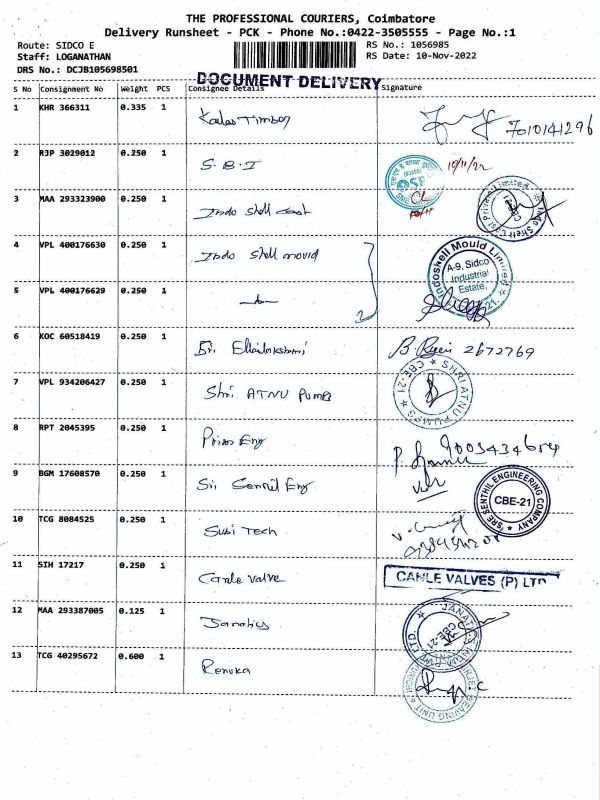 THE PROFESSIONAL COURIERS, Coimbatore
Delivery Runsheet - PCK - Phone No.:0422-3505555 - Page No.:1
Route: SIDCO E
RS No.: 1056985
Staff: LOGANATHAN
RS Date: 10-Nov-2022
DRS No.: DCJB105698501
DOCUMENT DELIVERY
S No Consignment No Weight PCS Consignee Details Signature
1 KHR 366311 0.335 1
7010141296
2 RJP 3029012 0.250 1 S.B.I
10/11/22
3 MAA 293323900 0.250 1 Indo Shell cast
4 VPL 400176630 0.250 1 Indo Shell mould
Indoshell Mould Limited
A-9, Sidco
Industrial
Estate,
5 VPL 400176629 0.250 1
6 KOC 60518419 0.250 1
2672769
7 VPL 934206427 0.250 1 Shri ATNU Pumps
SHRI ATNU PUMPS
CBE-21
8 RPT 2045395 0.250 1 Eng
9 BGM 17608570 0.250 1 Sri Senthil Eng
SRE SENTHIL ENGINEERING COMPANY
CBE-21
10 TCG 8084525 0.250 1 Subi Tech
11 SIH 17217 0.250 1 Canle Valve
CANLE VALVES (P) LTD
12 MAA 293387005 0.125 1 Janatics
CBE-21
13 TCG 40295672 0.600 1 Renuka